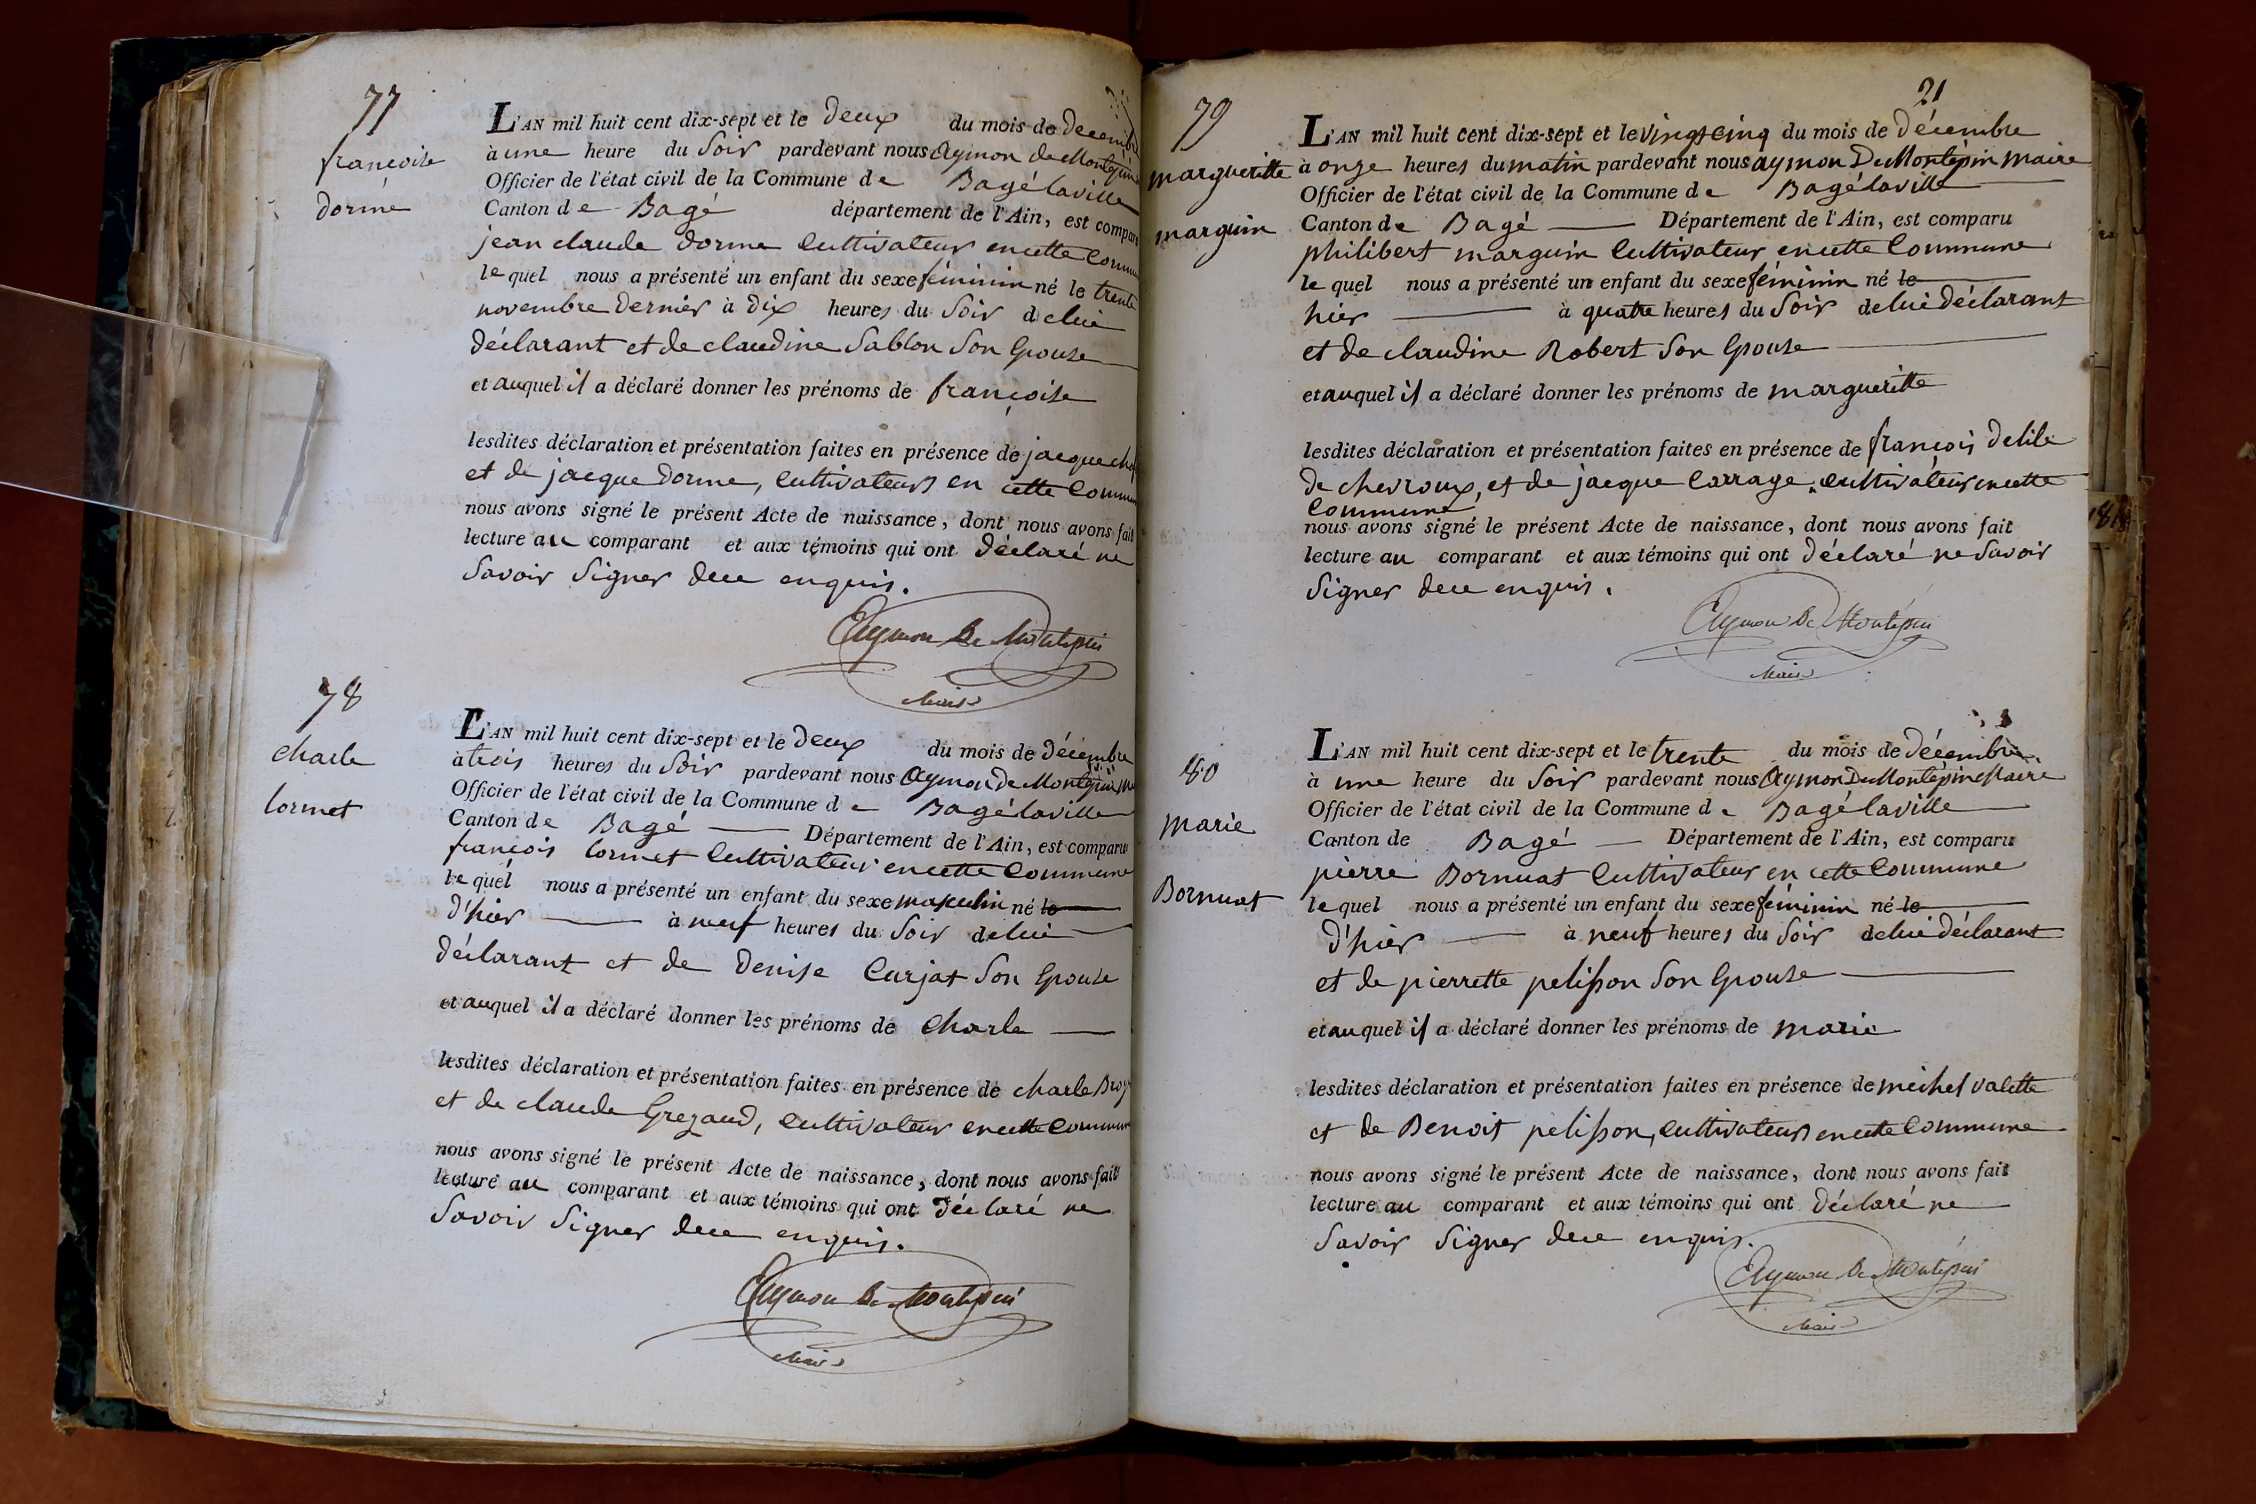 77
françoise
dorme
L'AN mil huit cent dix-sept et le deux du mois de decembre
à une heure du soir pardevant nous aymon de Montépin
Officier de l'état civil de la Commune de Bagé laville
Canton de Bagé département de l'Ain, est comparu
jean claude dorme cultivateur en cette commune
le quel nous a présenté un enfant du sexe féminin né le trente
novembre dernier à dix heures du soir de lui
déclarant et de claudine Sablon son épouse
et auquel il a déclaré donner les prénoms de françoise
lesdites déclaration et présentation faites en présence de jacque
et de jacque dorme, cultivateurs en cette commune
nous avons signé le présent Acte de naissance, dont nous avons fait
lecture au comparant et aux témoins qui ont déclaré ne
savoir signer de ce enquis.
Aymon De Montépin
Maire
78
charle
cormet
L'AN mil huit cent dix-sept et le deux du mois de décembre
à trois heures du soir pardevant nous Aymon de Montépin
Officier de l'état civil de la Commune de Bagé laville
Canton de Bagé Département de l'Ain, est comparu
françois cormet cultivateur en cette commune
le quel nous a présenté un enfant du sexe masculin né le
d'hier à neuf heures du soir de lui
déclarant et de denise Curjat son épouse
et auquel il a déclaré donner les prénoms de charle
lesdites déclaration et présentation faites en présence de charle
et de claude Grezaud, cultivateur en cette commune
nous avons signé le présent Acte de naissance, dont nous avons fait
lecture au comparant et aux témoins qui ont déclaré ne
savoir signer de ce enquis.
Aymon De Montépin
Maire
21
79
margueritte
marguin
L'AN mil huit cent dix-sept et le vingt cinq du mois de décembre
à onze heures du matin pardevant nous aymon De Montépin maire
Officier de l'état civil de la Commune de Bagé laville
Canton de Bagé Département de l'Ain, est comparu
philibert marguin cultivateur en cette commune
le quel nous a présenté un enfant du sexe féminin né le
hier à quatre heures du soir de lui déclarant
et de claudine Robert son épouse
et auquel il a déclaré donner les prénoms de margueritte
lesdites déclaration et présentation faites en présence de françois delile
de chevroux, et de jacque carrage cultivateur en cette
commune
nous avons signé le présent Acte de naissance, dont nous avons fait
lecture au comparant et aux témoins qui ont déclaré ne savoir
signer de ce enquis.
Aymon De Montépin
Maire
80
marie
Bornuat
L'AN mil huit cent dix-sept et le trente du mois de décembre
à une heure du soir pardevant nous Aymon De Montépin Maire
Officier de l'état civil de la Commune de Bagé laville
Canton de Bagé Département de l'Ain, est comparu
pierre Bornuat cultivateur en cette commune
le quel nous a présenté un enfant du sexe féminin né le
d'hier à neuf heures du soir de lui déclarant
et de pierrette pelisson son épouse
et auquel il a déclaré donner les prénoms de marie
lesdites déclaration et présentation faites en présence de michel valette
et de Benoit pelisson, cultivateurs en cette commune
nous avons signé le présent Acte de naissance, dont nous avons fait
lecture au comparant et aux témoins qui ont déclaré ne
savoir signer de ce enquis.
Aymon De Montépin
Maire